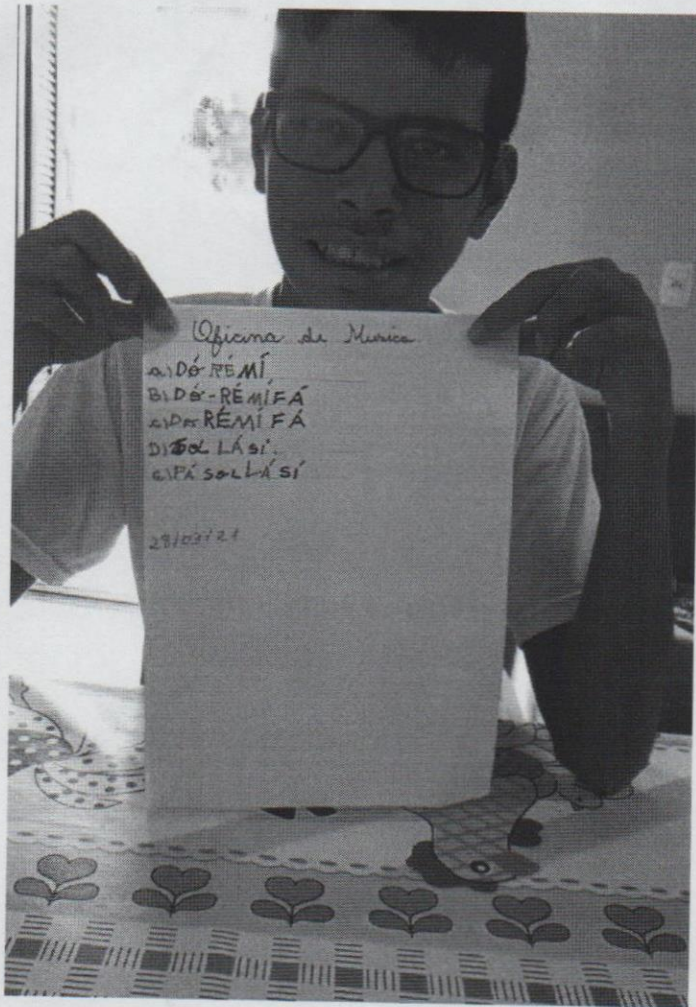 Oficina de Musica
a) DÓ RÉ MÍ
B) DÓ - RÉ MÍ FÁ
c) DO RÉ MÍ FÁ
D) SOL LÁ SÍ.
e) FÁ SOL LÁ SÍ
29/03/21